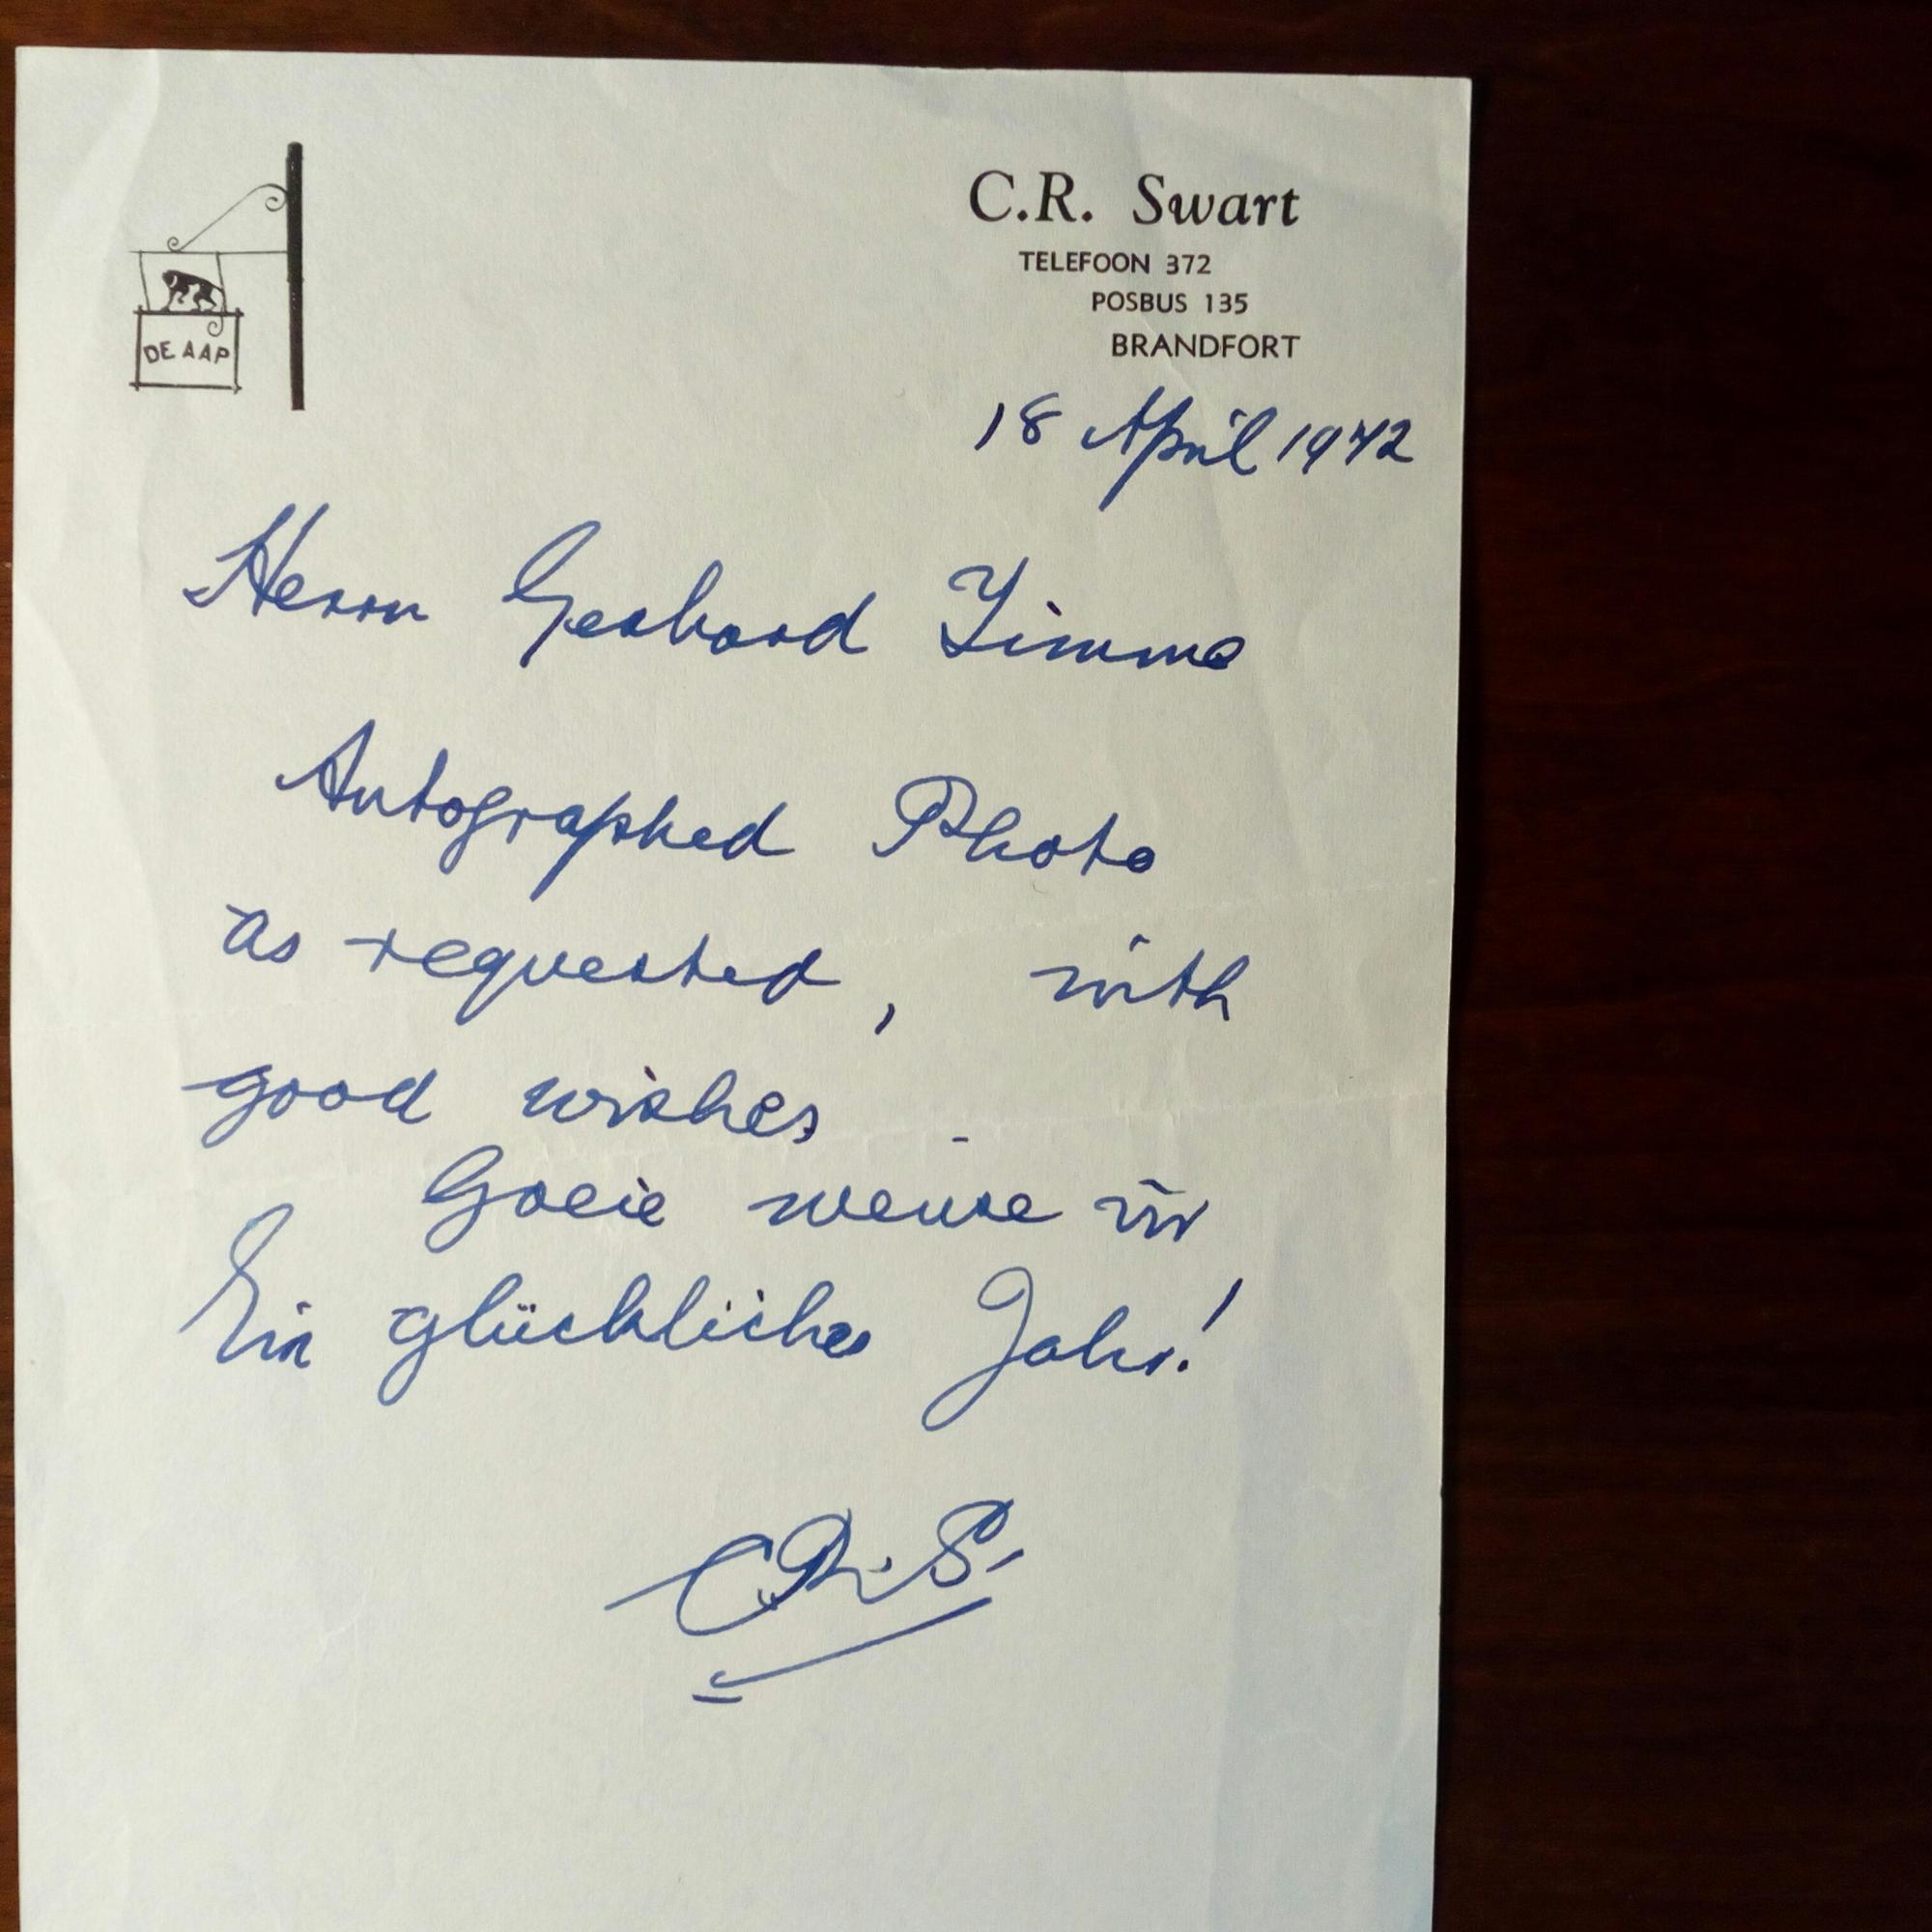 DE AAP
C.R. Swart
TELEFOON 372
POSBUS 135
BRANDFORT
18 April 1942
Herrn Gerhard Timme
Autographed Photo
as requested, with
good wishes.
Goeie wense vir
Ein glückliches Jahr!
C.R.S.